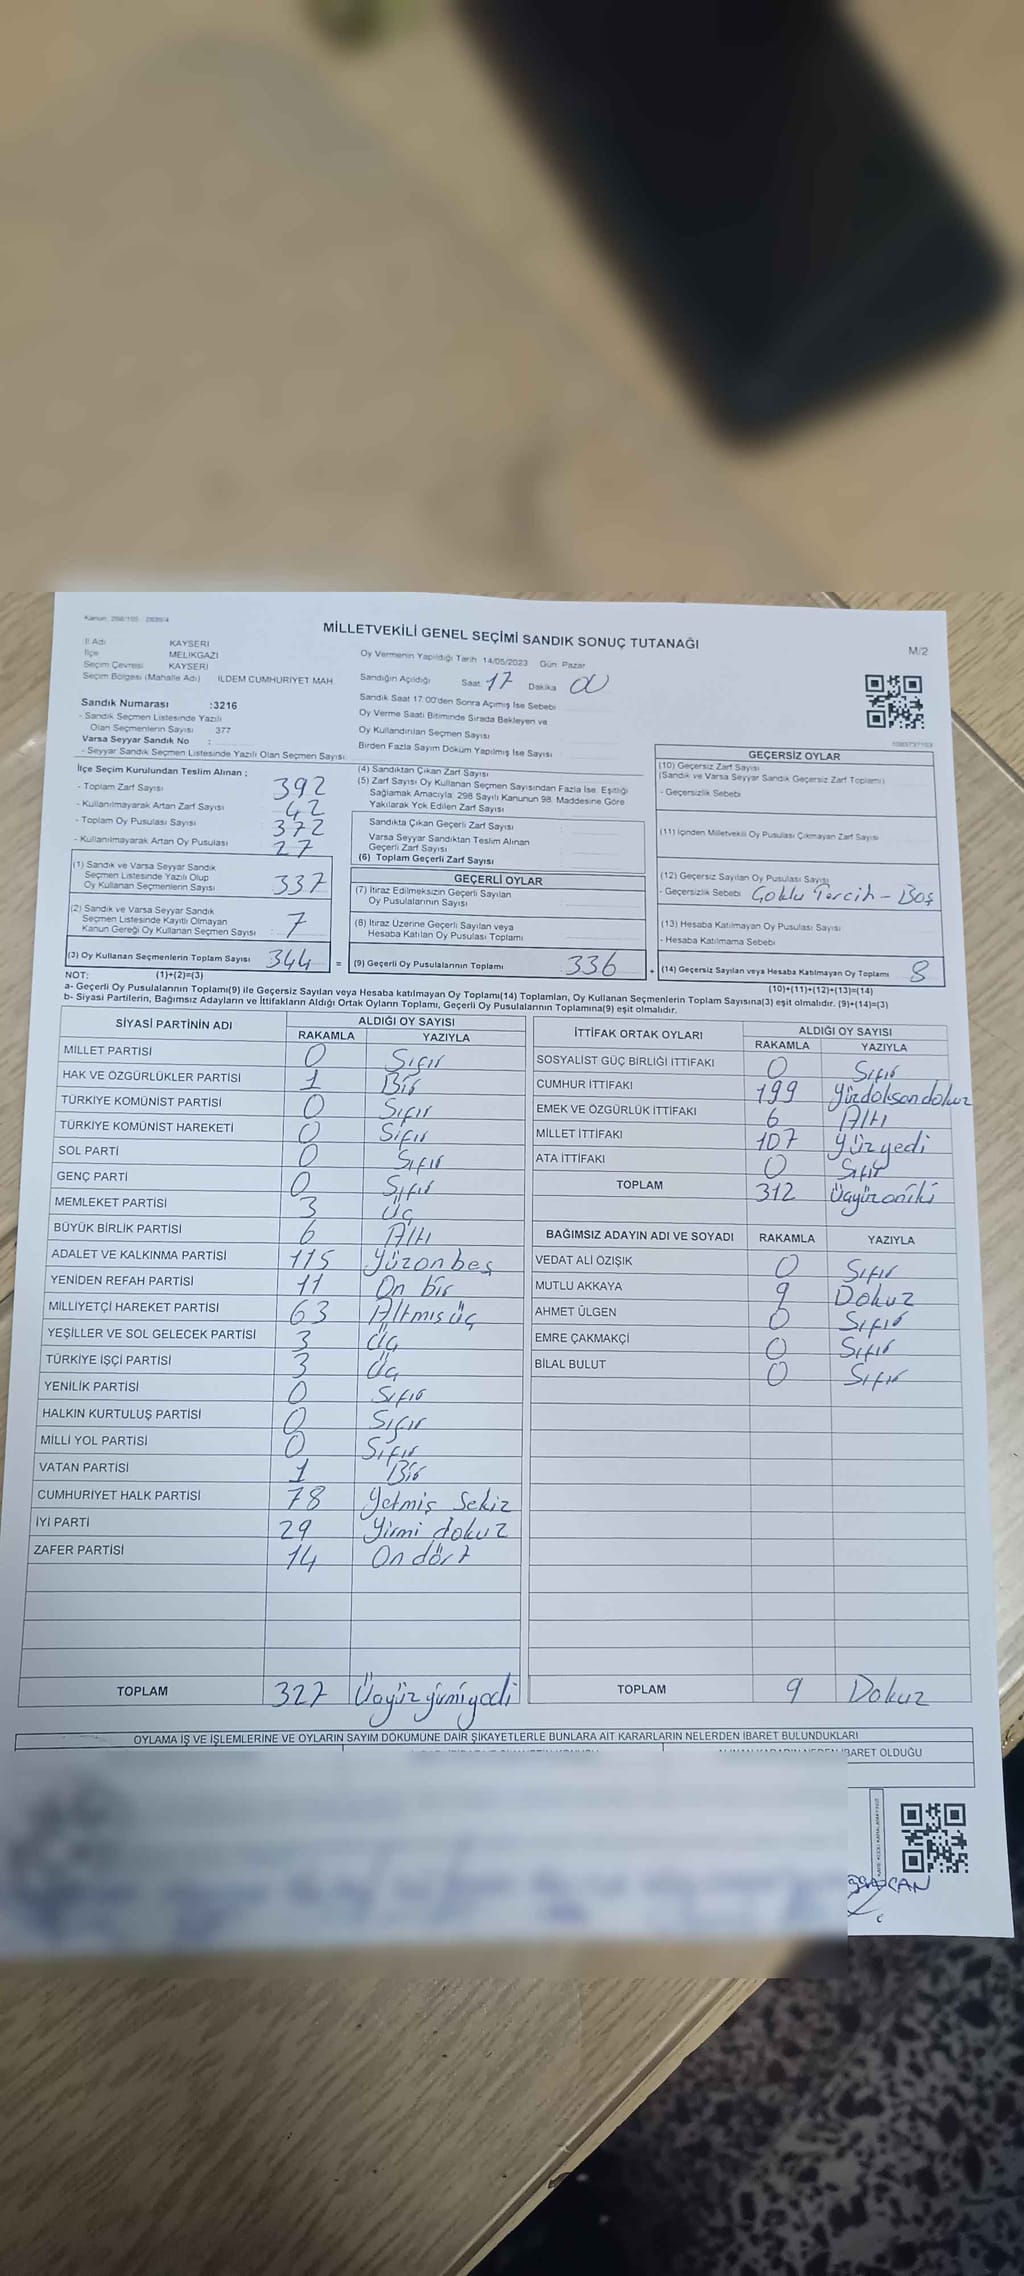 Kanun, 298/105 2839/4
MİLLETVEKİLİ GENEL SEÇİMİ SANDIK SONUÇ TUTANAĞI
M/2
İl Adı KAYSERİ
İlçe MELİKGAZİ
Seçim Çevresi KAYSERİ
Seçim Bölgesi (Mahalle Adı) İLDEM CUMHURİYET MAH.
Oy Vermenin Yapıldığı Tarih 14/05/2023 Gün: Pazar
Sandığın Açıldığı Saat 17 Dakika 00
Sandık Saat 17:00'den Sonra Açımış İse Sebebi
Oy Verme Saati Bitiminde Sırada Bekleyen ve
Oy Kullandırılan Seçmen Sayısı
Birden Fazla Sayım Döküm Yapılmış İse Sayısı
Sandık Numarası :3216
- Sandık Seçmen Listesinde Yazılı
Olan Seçmenlerin Sayısı 377
Varsa Seyyar Sandık No :
- Seyyar Sandık Seçmen Listesinde Yazılı Olan Seçmen Sayısı:
İlçe Seçim Kurulundan Teslim Alınan ;
- Toplam Zarf Sayısı 392
- Kullanılmayarak Artan Zarf Sayısı 42
- Toplam Oy Pusulası Sayısı 372
- Kullanılmayarak Artan Oy Pusulası 27
(1) Sandık ve Varsa Seyyar Sandık
Seçmen Listesinde Yazılı Olup
Oy Kullanan Seçmenlerin Sayısı 337
(2) Sandık ve Varsa Seyyar Sandık
Seçmen Listesinde Kayıtlı Olmayan
Kanun Gereği Oy Kullanan Seçmen Sayısı : 7
(3) Oy Kullanan Seçmenlerin Toplam Sayısı 344 =
(4) Sandıktan Çıkan Zarf Sayısı
(5) Zarf Sayısı Oy Kullanan Seçmen Sayısından Fazla İse, Eşitliği
Sağlamak Amacıyla, 298 Sayılı Kanunun 98. Maddesine Göre
Yakılarak Yok Edilen Zarf Sayısı
Sandıkta Çıkan Geçerli Zarf Sayısı
Varsa Seyyar Sandıktan Teslim Alınan
Geçerli Zarf Sayısı
(6) Toplam Geçerli Zarf Sayısı
GEÇERLİ OYLAR
(7) İtiraz Edilmeksizin Geçerli Sayılan
Oy Pusulalarının Sayısı
(8) İtiraz Üzerine Geçerli Sayılan veya
Hesaba Katılan Oy Pusulası Toplamı
(9) Geçerli Oy Pusulalarının Toplamı 336 +
1083737153
GEÇERSİZ OYLAR
(10) Geçersiz Zarf Sayısı
(Sandık ve Varsa Seyyar Sandık Geçersiz Zarf Toplamı)
- Geçersizlik Sebebi
(11) İçinden Milletvekili Oy Pusulası Çıkmayan Zarf Sayısı
(12) Geçersiz Sayılan Oy Pusulası Sayısı
- Geçersizlik Sebebi Çoklu Tercih - Boş
(13) Hesaba Katılmayan Oy Pusulası Sayısı
- Hesaba Katılmama Sebebi
(14) Geçersiz Sayılan veya Hesaba Katılmayan Oy Toplamı 8
NOT: (1)+(2)=(3)
(10)+(11)+(12)+(13)=(14)
a- Geçerli Oy Pusulalarının Toplamı(9) ile Geçersiz Sayılan veya Hesaba katılmayan Oy Toplamı(14) Toplamları, Oy Kullanan Seçmenlerin Toplam Sayısına(3) eşit olmalıdır. (9)+(14)=(3)
b- Siyasi Partilerin, Bağımsız Adayların ve İttifakların Aldığı Ortak Oyların Toplamı, Geçerli Oy Pusulalarının Toplamına(9) eşit olmalıdır.
SİYASİ PARTİNİN ADI ALDIĞI OY SAYISI
RAKAMLA YAZIYLA
MİLLET PARTİSİ 0 Sıfır
HAK VE ÖZGÜRLÜKLER PARTİSİ 1 Bir
TÜRKİYE KOMÜNİST PARTİSİ 0 Sıfır
TÜRKİYE KOMÜNİST HAREKETİ 0 Sıfır
SOL PARTİ 0 Sıfır
GENÇ PARTİ 0 Sıfır
MEMLEKET PARTİSİ 3 Üç
BÜYÜK BİRLİK PARTİSİ 6 Altı
ADALET VE KALKINMA PARTİSİ 115 Yüzonbeş
YENİDEN REFAH PARTİSİ 11 On bir
MİLLİYETÇİ HAREKET PARTİSİ 63 Altmışüç
YEŞİLLER VE SOL GELECEK PARTİSİ 3 Üç
TÜRKİYE İŞÇİ PARTİSİ 3 Üç
YENİLİK PARTİSİ 0 Sıfır
HALKIN KURTULUŞ PARTİSİ 0 Sıfır
MİLLİ YOL PARTİSİ 0 Sıfır
VATAN PARTİSİ 1 Bir
CUMHURİYET HALK PARTİSİ 78 Yetmiş Sekiz
İYİ PARTİ 29 Yirmi dokuz
ZAFER PARTİSİ 14 On dört
TOPLAM 327 Üçyüz yirmiyedi
İTTİFAK ORTAK OYLARI ALDIĞI OY SAYISI
RAKAMLA YAZIYLA
SOSYALİST GÜÇ BİRLİĞİ İTTİFAKI 0 Sıfır
CUMHUR İTTİFAKI 199 Yüzdoksandokuz
EMEK VE ÖZGÜRLÜK İTTİFAKI 6 Altı
MİLLET İTTİFAKI 107 Yüzyedi
ATA İTTİFAKI 0 Sıfır
TOPLAM 312 Üçyüzoniki
BAĞIMSIZ ADAYIN ADI VE SOYADI RAKAMLA YAZIYLA
VEDAT ALİ ÖZIŞIK 0 Sıfır
MUTLU AKKAYA 9 Dokuz
AHMET ÜLGEN 0 Sıfır
EMRE ÇAKMAKÇİ 0 Sıfır
BİLAL BULUT 0 Sıfır
TOPLAM 9 Dokuz
OYLAMA İŞ VE İŞLEMLERİNE VE OYLARIN SAYIM DÖKÜMÜNE DAİR ŞİKAYETLERLE BUNLARA AİT KARARLARIN NELERDEN İBARET BULUNDUKLARI
İBARET OLDUĞU
CAN